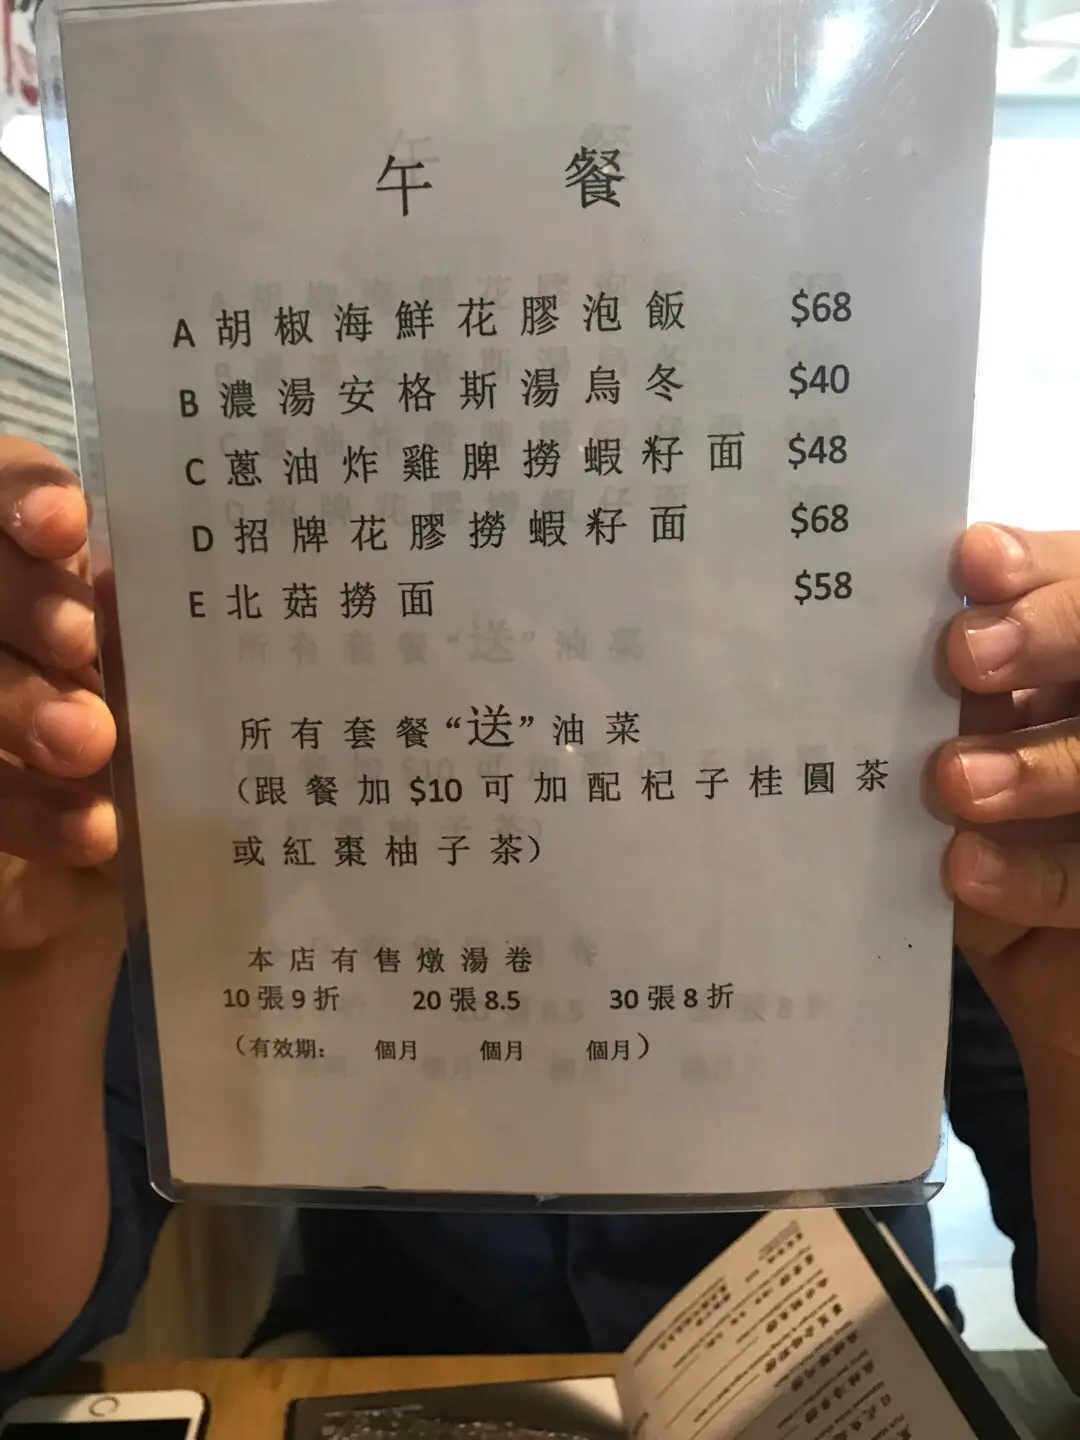 午餐
A 胡椒海鮮花膠泡飯 $68
B 濃湯安格斯湯烏冬 $40
C 蔥油炸雞脾撈蝦籽面 $48
D 招牌花膠撈蝦籽面 $68
E 北菇撈面 $58
所有套餐“送”油菜
（跟餐加 $10 可加配杞子桂圓茶
或紅棗柚子茶）
本店有售燉湯卷
10 張 9 折 20 張 8.5 30 張 8 折
（有效期： 個月 個月 個月）